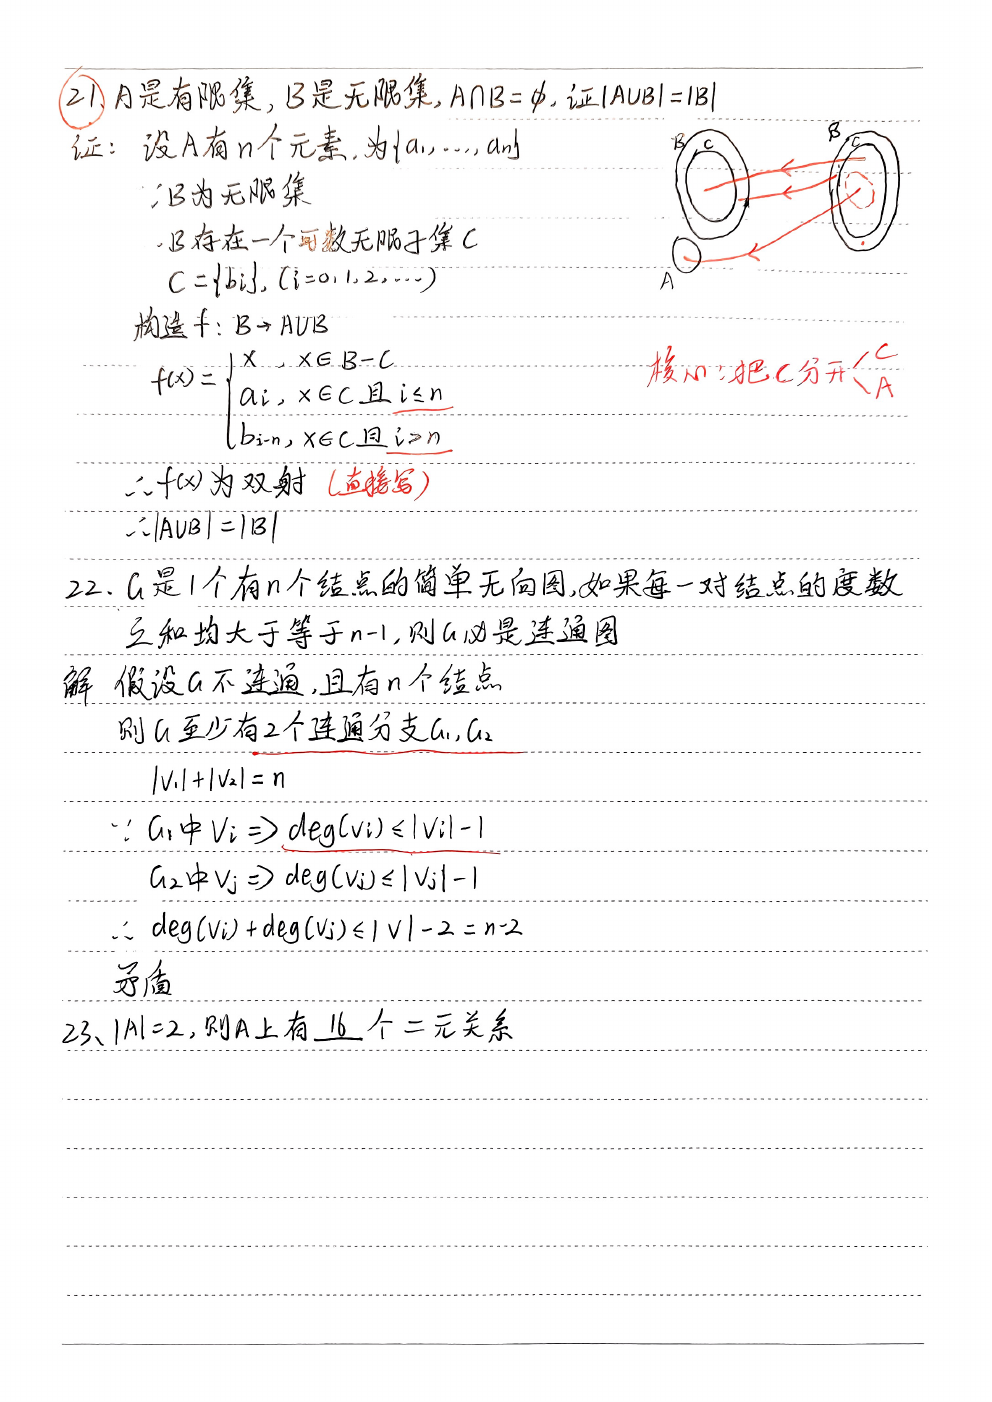 21、A是有限集，B是无限集，A∩B=φ，证|A∪B|=|B|
证：设A有n个元素，为{a₁,...,aₙ}
∵B为无限集
∴B存在一个可数无限子集C
C={bi}，(i=0,1,2,......)
构造f：B→A∪B
f(x)={
x，x∈B-C
ai，x∈C且i≤n
bi-n，x∈C且i>n
∴f(x)为双射（直接写）
∴|A∪B|=|B|
B C
B C
A
核心：把C分开<C A
22、G是1个有n个结点的简单无向图，如果每一对结点的度数
之和均大于等于n-1，则G必是连通图
解 假设G不连通，且有n个结点
则G至少有2个连通分支G₁，G₂
|V₁|+|V₂|=n
∵G₁中Vi⇒deg(Vi)≤|Vi|-1
G₂中Vj⇒deg(Vj)≤|Vj|-1
∴deg(Vi)+deg(Vj)≤|V|-2=n-2
矛盾
23、|A|=2，则A上有16个二元关系